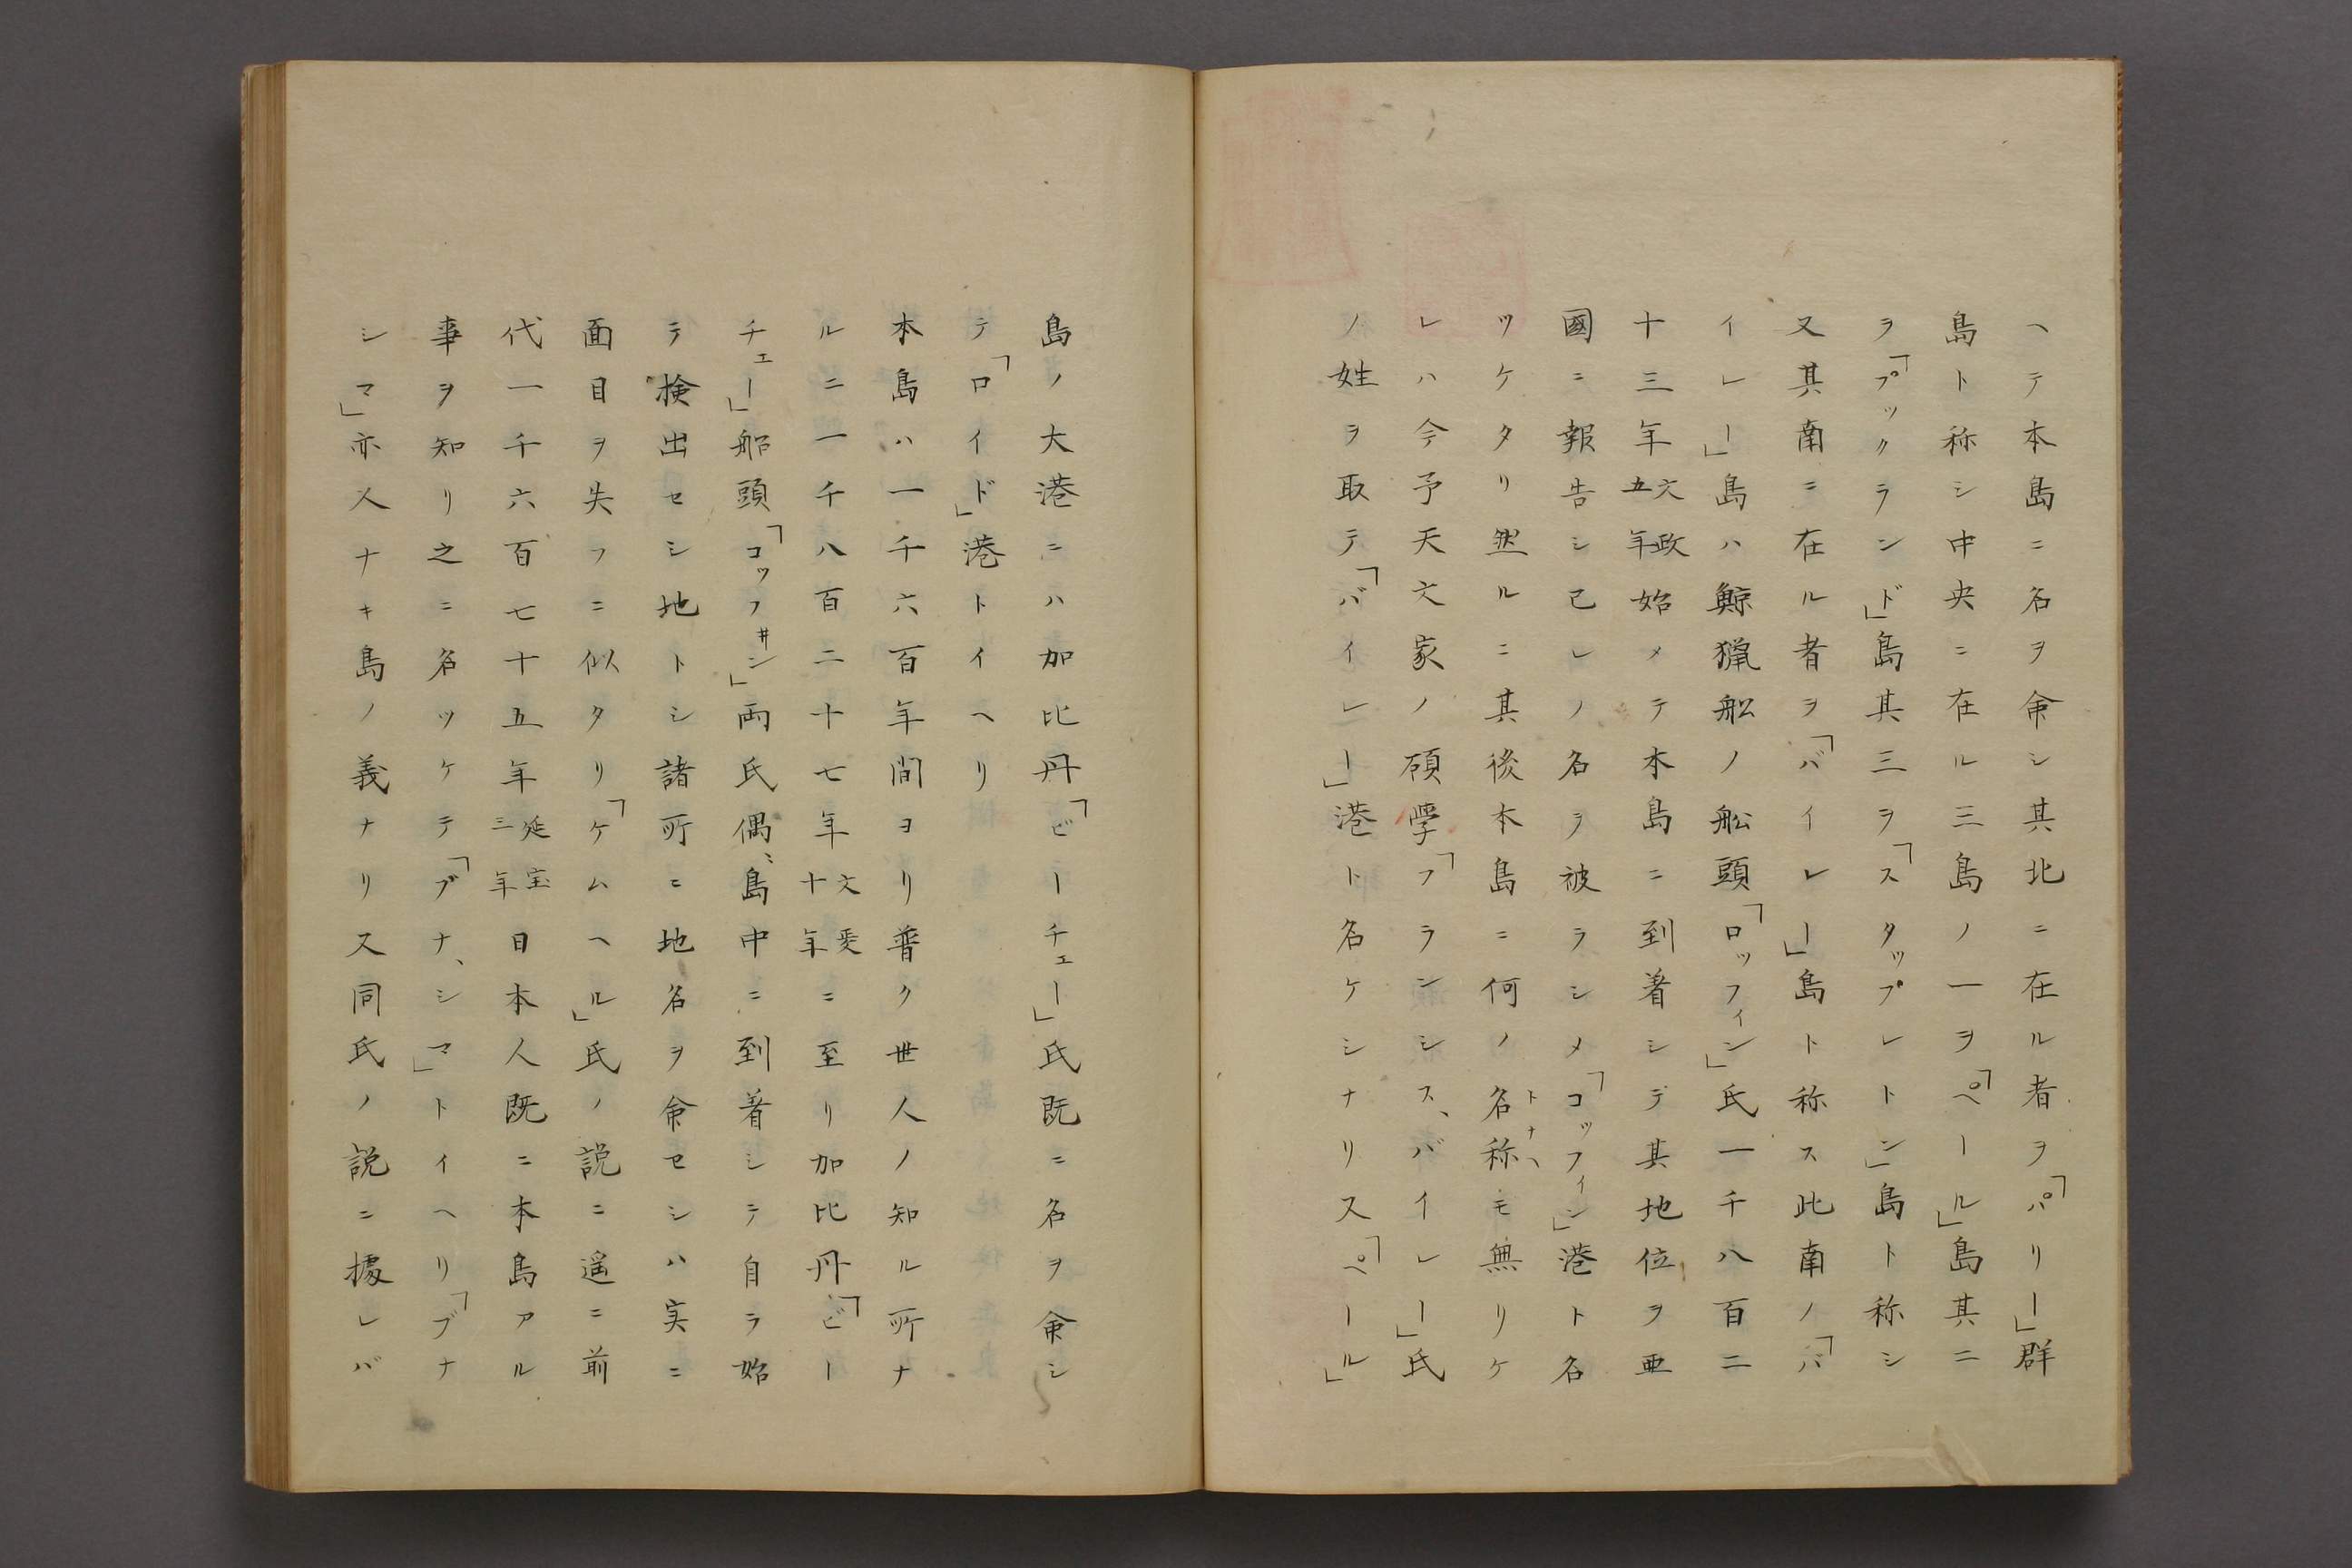 ヘテ本島ニ名ヲ命シ其北ニ在ル者ヲ「パリー」群
島ト称シ中央ニ在ル三島ノ一ヲ「ペール」島其二
ヲ「プックランド」島其三ヲ「スタップレトン」島ト称シ
又其南ニ在ル者ヲ「バイレー」島ト称ス此南ノ「バ
イレー」島ハ鯨猟船ノ舩頭「ロッフィン」氏一千八百二
十三年文政五年始メテ本島ニ到着シテ其地位ヲ亜
國ニ報告シ己レノ名ヲ被ラシメ「コッフィン」港ト名
ツケタリ然ルニ其後本島ニ何ノ名称トナヘモ無リケ
レハ今予天文家ノ碩学「フランシス、バイレー」氏
ノ姓ヲ取テ「バイレー」港ト名ケシナリ又「ペール」
島ノ大港ニハ加比丹「ビーチェー」氏既ニ名ヲ命シ
テ「ロイド」港トイヘリ
本島ハ一千六百年間ヨリ普ク世人ノ知ル所ナ
ルニ一千八百二十七年文政十年ニ至リ加比丹「ビー
チェー」船頭「コッフヰン」両氏偶〻島中ニ到着シテ自ラ始
テ検出セシ地トシ諸所ニ地名ヲ命セシハ実ニ
面目ヲ失フニ似タリ「ケムヘル」氏ノ説ニ遥ニ前
代一千六百七十五年延宝三年日本人既ニ本島アル
事ヲ知リ之ニ名ツケテ「ブナ、シマ」トイヘリ「ブナ
シマ」亦人ナキ島ノ義ナリ又同氏ノ説ニ據レバ